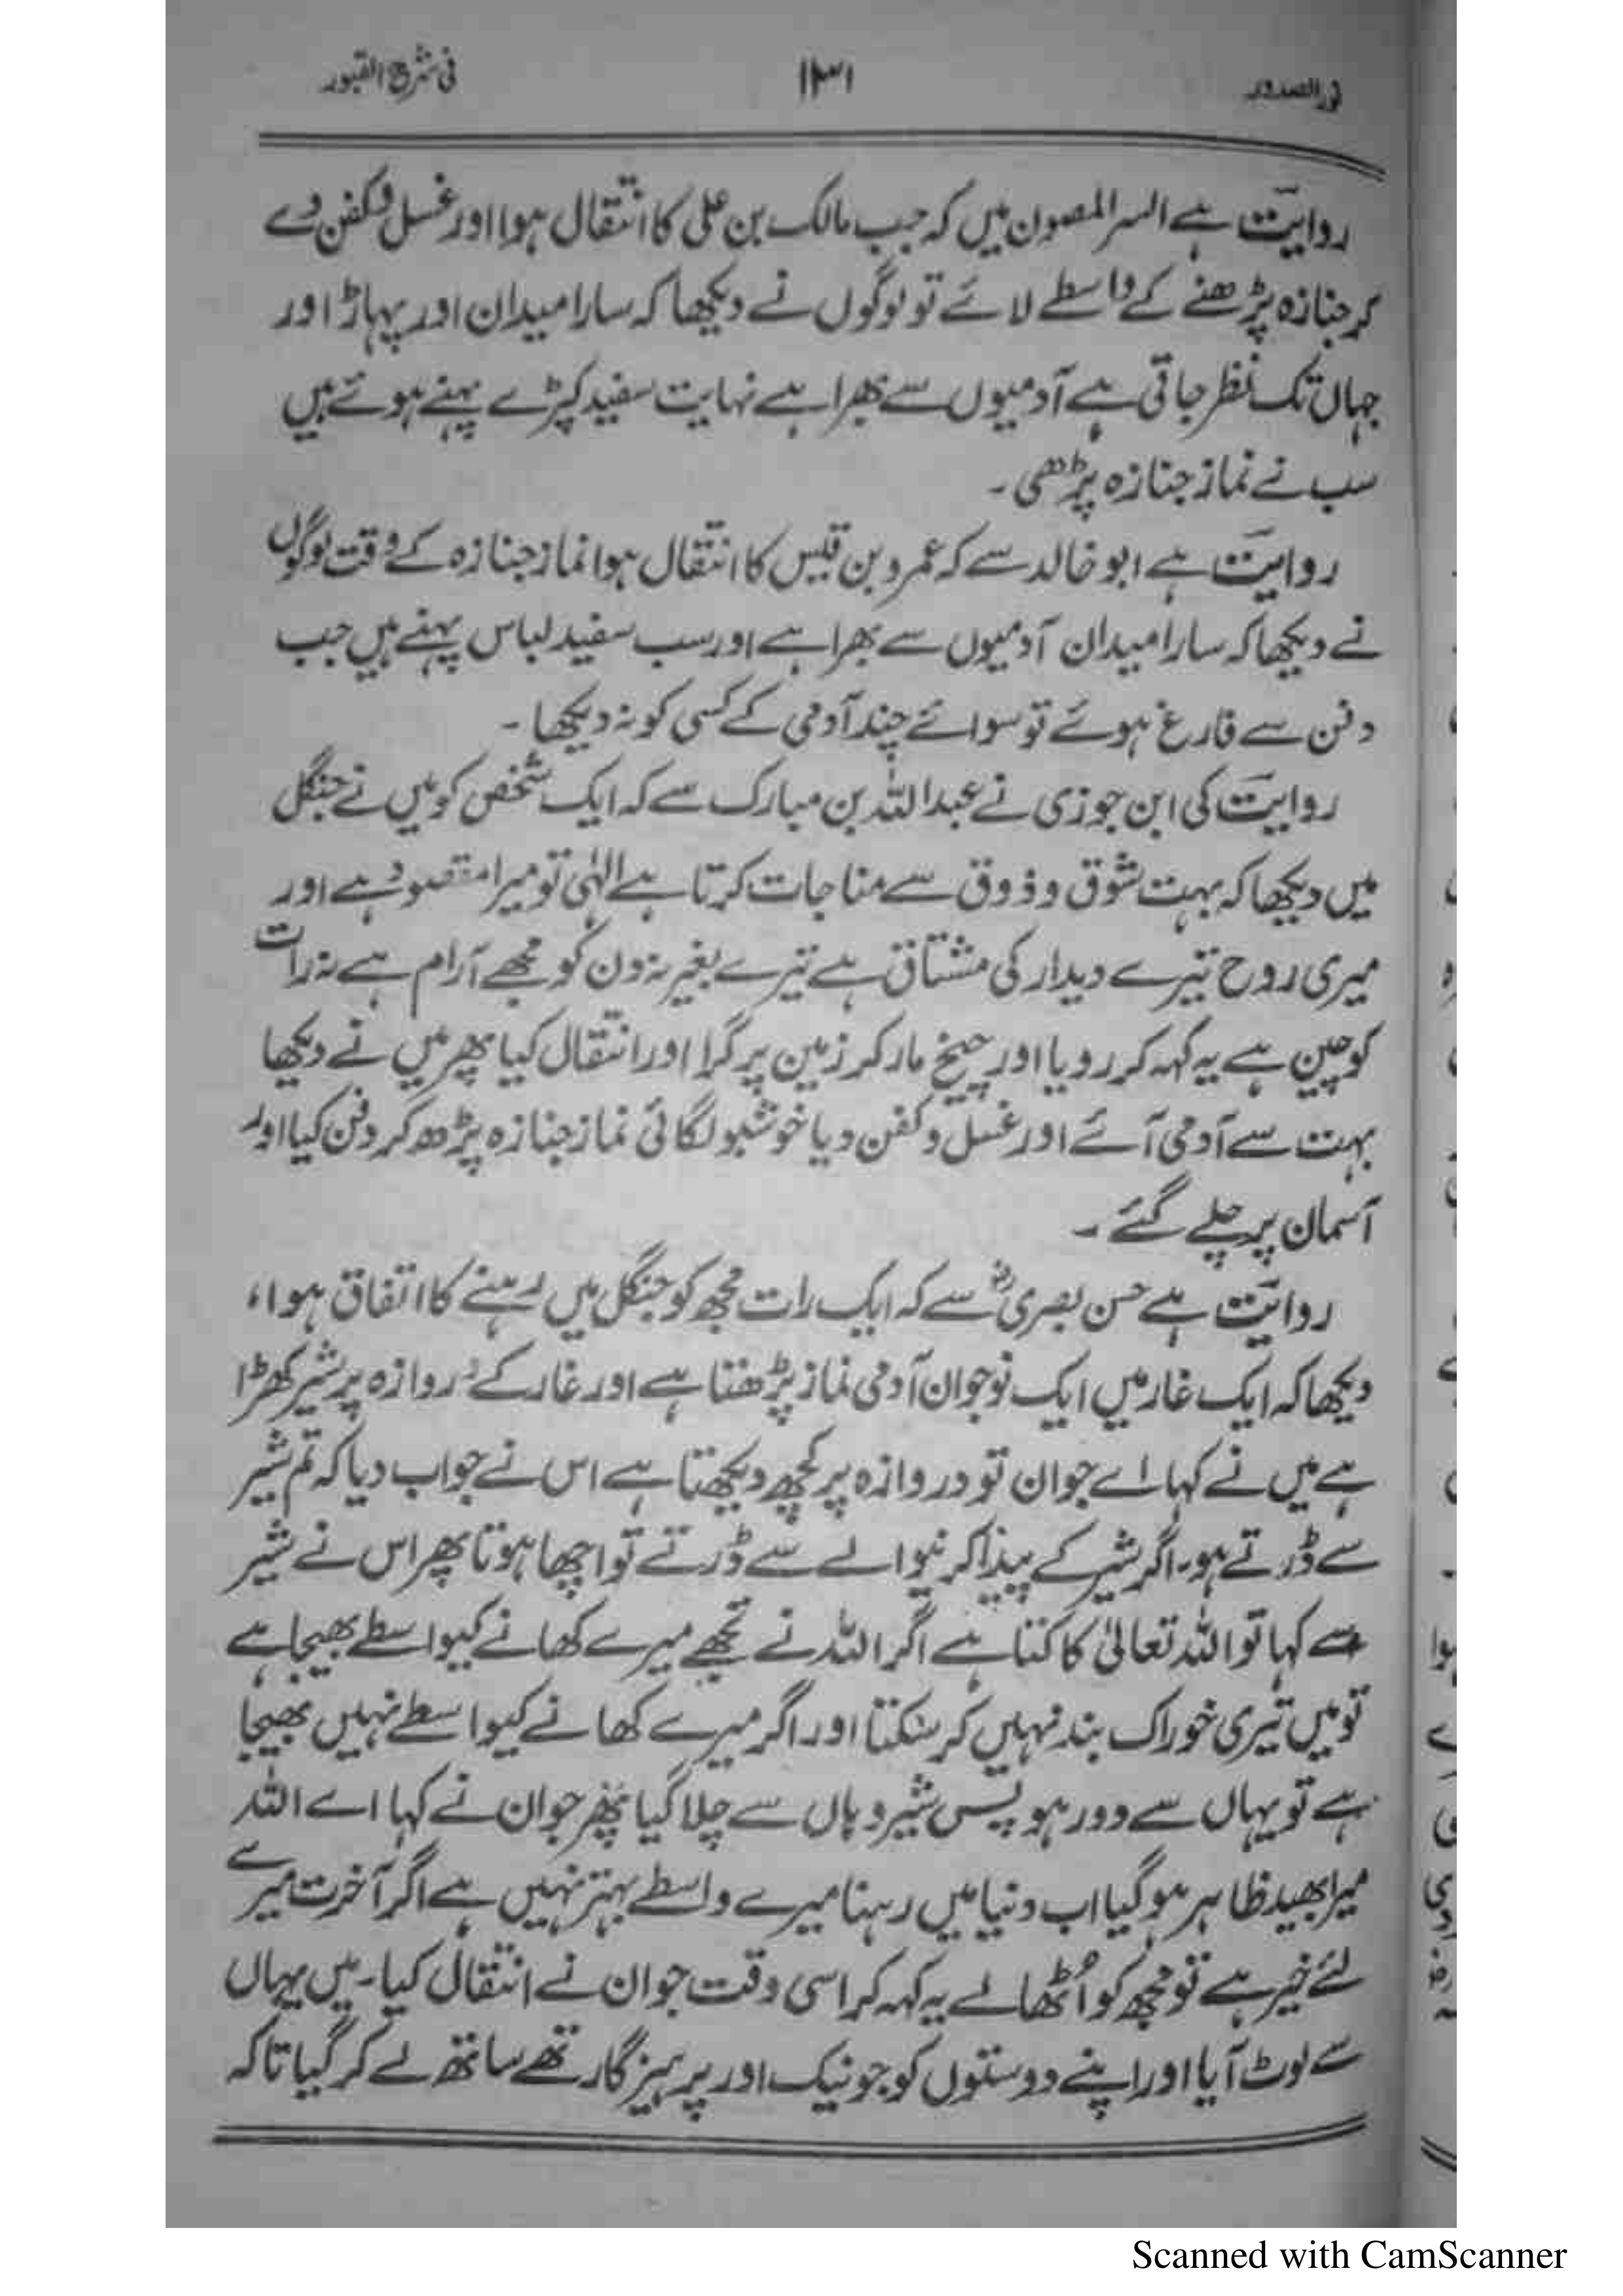 نور الصدور ۱۳۱ فی شرح القبور
روایت ہے السر المصون میں کہ جب مالک بن علی کا انتقال ہوا اور غسل و کفن دے
کر جنازہ پڑھنے کے واسطے لائے تو لوگوں نے دیکھا کہ سارا میدان اور پہاڑ اور
جہاں تک نظر جاتی ہے آدمیوں سے بھرا ہے نہایت سفید کپڑے پہنے ہوئے ہیں
سب نے نماز جنازہ پڑھی۔
روایت ہے ابو خالد سے کہ عمرو بن قیس کا انتقال ہوا نماز جنازہ کے وقت لوگوں
نے دیکھا کہ سارا میدان آدمیوں سے بھرا ہے اور سب سفید لباس پہنے ہیں جب
دفن سے فارغ ہوئے تو سوائے چند آدمی کے کسی کو نہ دیکھا۔
روایت کی ابن جوزی نے عبداللہ بن مبارک سے کہ ایک شخص کو میں نے جنگل
میں دیکھا کہ بہت شوق و ذوق سے مناجات کرتا ہے الٰہی تو میرا مقصود ہے اور
میری روح تیرے دیدار کی مشتاق ہے تیرے بغیر نہ دن کو مجھے آرام ہے نہ رات
کو چین ہے یہ کہہ کر رویا اور چیخ مار کر زمین پر گرا اور انتقال کیا پھر میں نے دیکھا
بہت سے آدمی آئے اور غسل و کفن دیا خوشبو لگائی نماز جنازہ پڑھ کر دفن کیا اور
آسمان پر چلے گئے۔
روایت ہے حسن بصریؒ سے کہ ایک رات مجھ کو جنگل میں رہنے کا اتفاق ہوا،
دیکھا کہ ایک غار میں ایک نوجوان آدمی نماز پڑھتا ہے اور غار کے دروازہ پر شیر کھڑا
ہے میں نے کہا اے جوان تو دروازہ پر کچھ دیکھتا ہے اس نے جواب دیا کہ تم شیر
سے ڈرتے ہو۔ اگر شیر کے پیدا کرنیوالے سے ڈرتے تو اچھا ہوتا پھر اس نے شیر
سے کہا تو اللہ تعالیٰ کا کتا ہے اگر اللہ نے تجھے میرے کھانے کیواسطے بھیجا ہے
تو میں تیری خوراک بند نہیں کر سکتا اور اگر میرے کھانے کیواسطے نہیں بھیجا
ہے تو یہاں سے دور ہو پس شیر وہاں سے چلا گیا پھر جوان نے کہا اے اللہ
میرا بھید ظاہر ہو گیا اب دنیا میں رہنا میرے واسطے بہتر نہیں ہے اگر آخرت میرے
لئے خیر ہے تو مجھ کو اُٹھا لے یہ کہہ کر اسی وقت جوان نے انتقال کیا۔ میں یہاں
سے لوٹ آیا اور اپنے دوستوں کو جو نیک اور پرہیزگار تھے ساتھ لے کر گیا تاکہ
Scanned with CamScanner